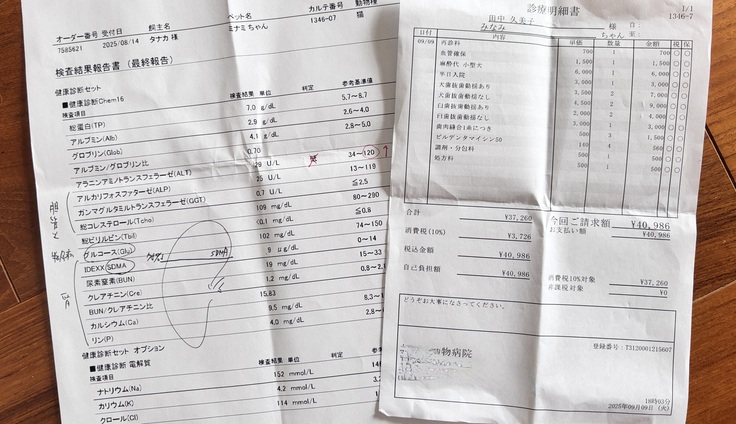 オーダー番号 受付日 飼主名 ペット名 カルテ番号 動物種
7585621 2025/08/14 タナカ 様 ミナミちゃん 1346-07 猫
検査結果報告書(最終報告)
健康診断セット
■健康診断Chem16
検査項目 検査結果 単位 判定 参考基準値
総蛋白(TP) 7.0 g/dL 5.7~8.7
アルブミン(Alb) 2.9 g/dL 2.6~4.0
グロブリン(Glob) 4.1 g/dL 2.8~5.0
アルブミン/グロブリン比 0.70
アラニンアミノトランスフェラーゼ(ALT) 28 U/L 34~120 ↑
アルカリフォスファターゼ(ALP) 25 U/L 13~119
ガンマグルタミルトランスフェラーゼ(GGT) 0.7 U/L ≦2.5
総コレステロール(Tcho) 109 mg/dL 80~280
総ビリルビン(Tbil) <0.1 mg/dL ≦0.8
グルコース(Glu) 102 mg/dL 74~150
IDEXX SDMA 9 μg/dL 0~14
尿素窒素(BUN) 19 mg/dL 15~33
クレアチニン(Cre) 1.2 mg/dL 0.8~2.
BUN/クレアチニン比 15.83
カルシウム(Ca) 9.5 mg/dL 8.3~1
リン(P) 4.0 mg/dL 2.8~
SDMA
健康診断セット オプション
■健康診断 電解質
検査項目 検査結果 単位 判定 参考
ナトリウム(Na) 152 mmol/L
カリウム(K) 4.2 mmol/L
クロール(Cl) 114 mmol/L
診療明細書
1/1
1346-7
田中 久美子 様
みなみ ちゃん
日付 内容 単価 数量 金額 税 保
09/09 再診料 700 1 700
血管確保 1,500 1 1,500
麻酔代 小型犬
半日入院
犬歯抜歯動揺あり
犬歯抜歯動揺なし
臼歯抜歯動揺あり
臼歯抜歯動揺なし
歯肉縫合1糸につき
ビルデンタマイシン50
調剤・分包料
処方料
合計 ¥37,260
消費税(10%) ¥3,726
税込金額 ¥40,986
自己負担額 ¥40,986
今回ご請求額 ¥40,986
お支払い額 ¥40,986
消費税10%対象 ¥37,260
非課税対象 ¥0
どうぞお大事になさってください。
登録番号:T3120001215607
物病院
18時03分
2025年09月09日 (火)